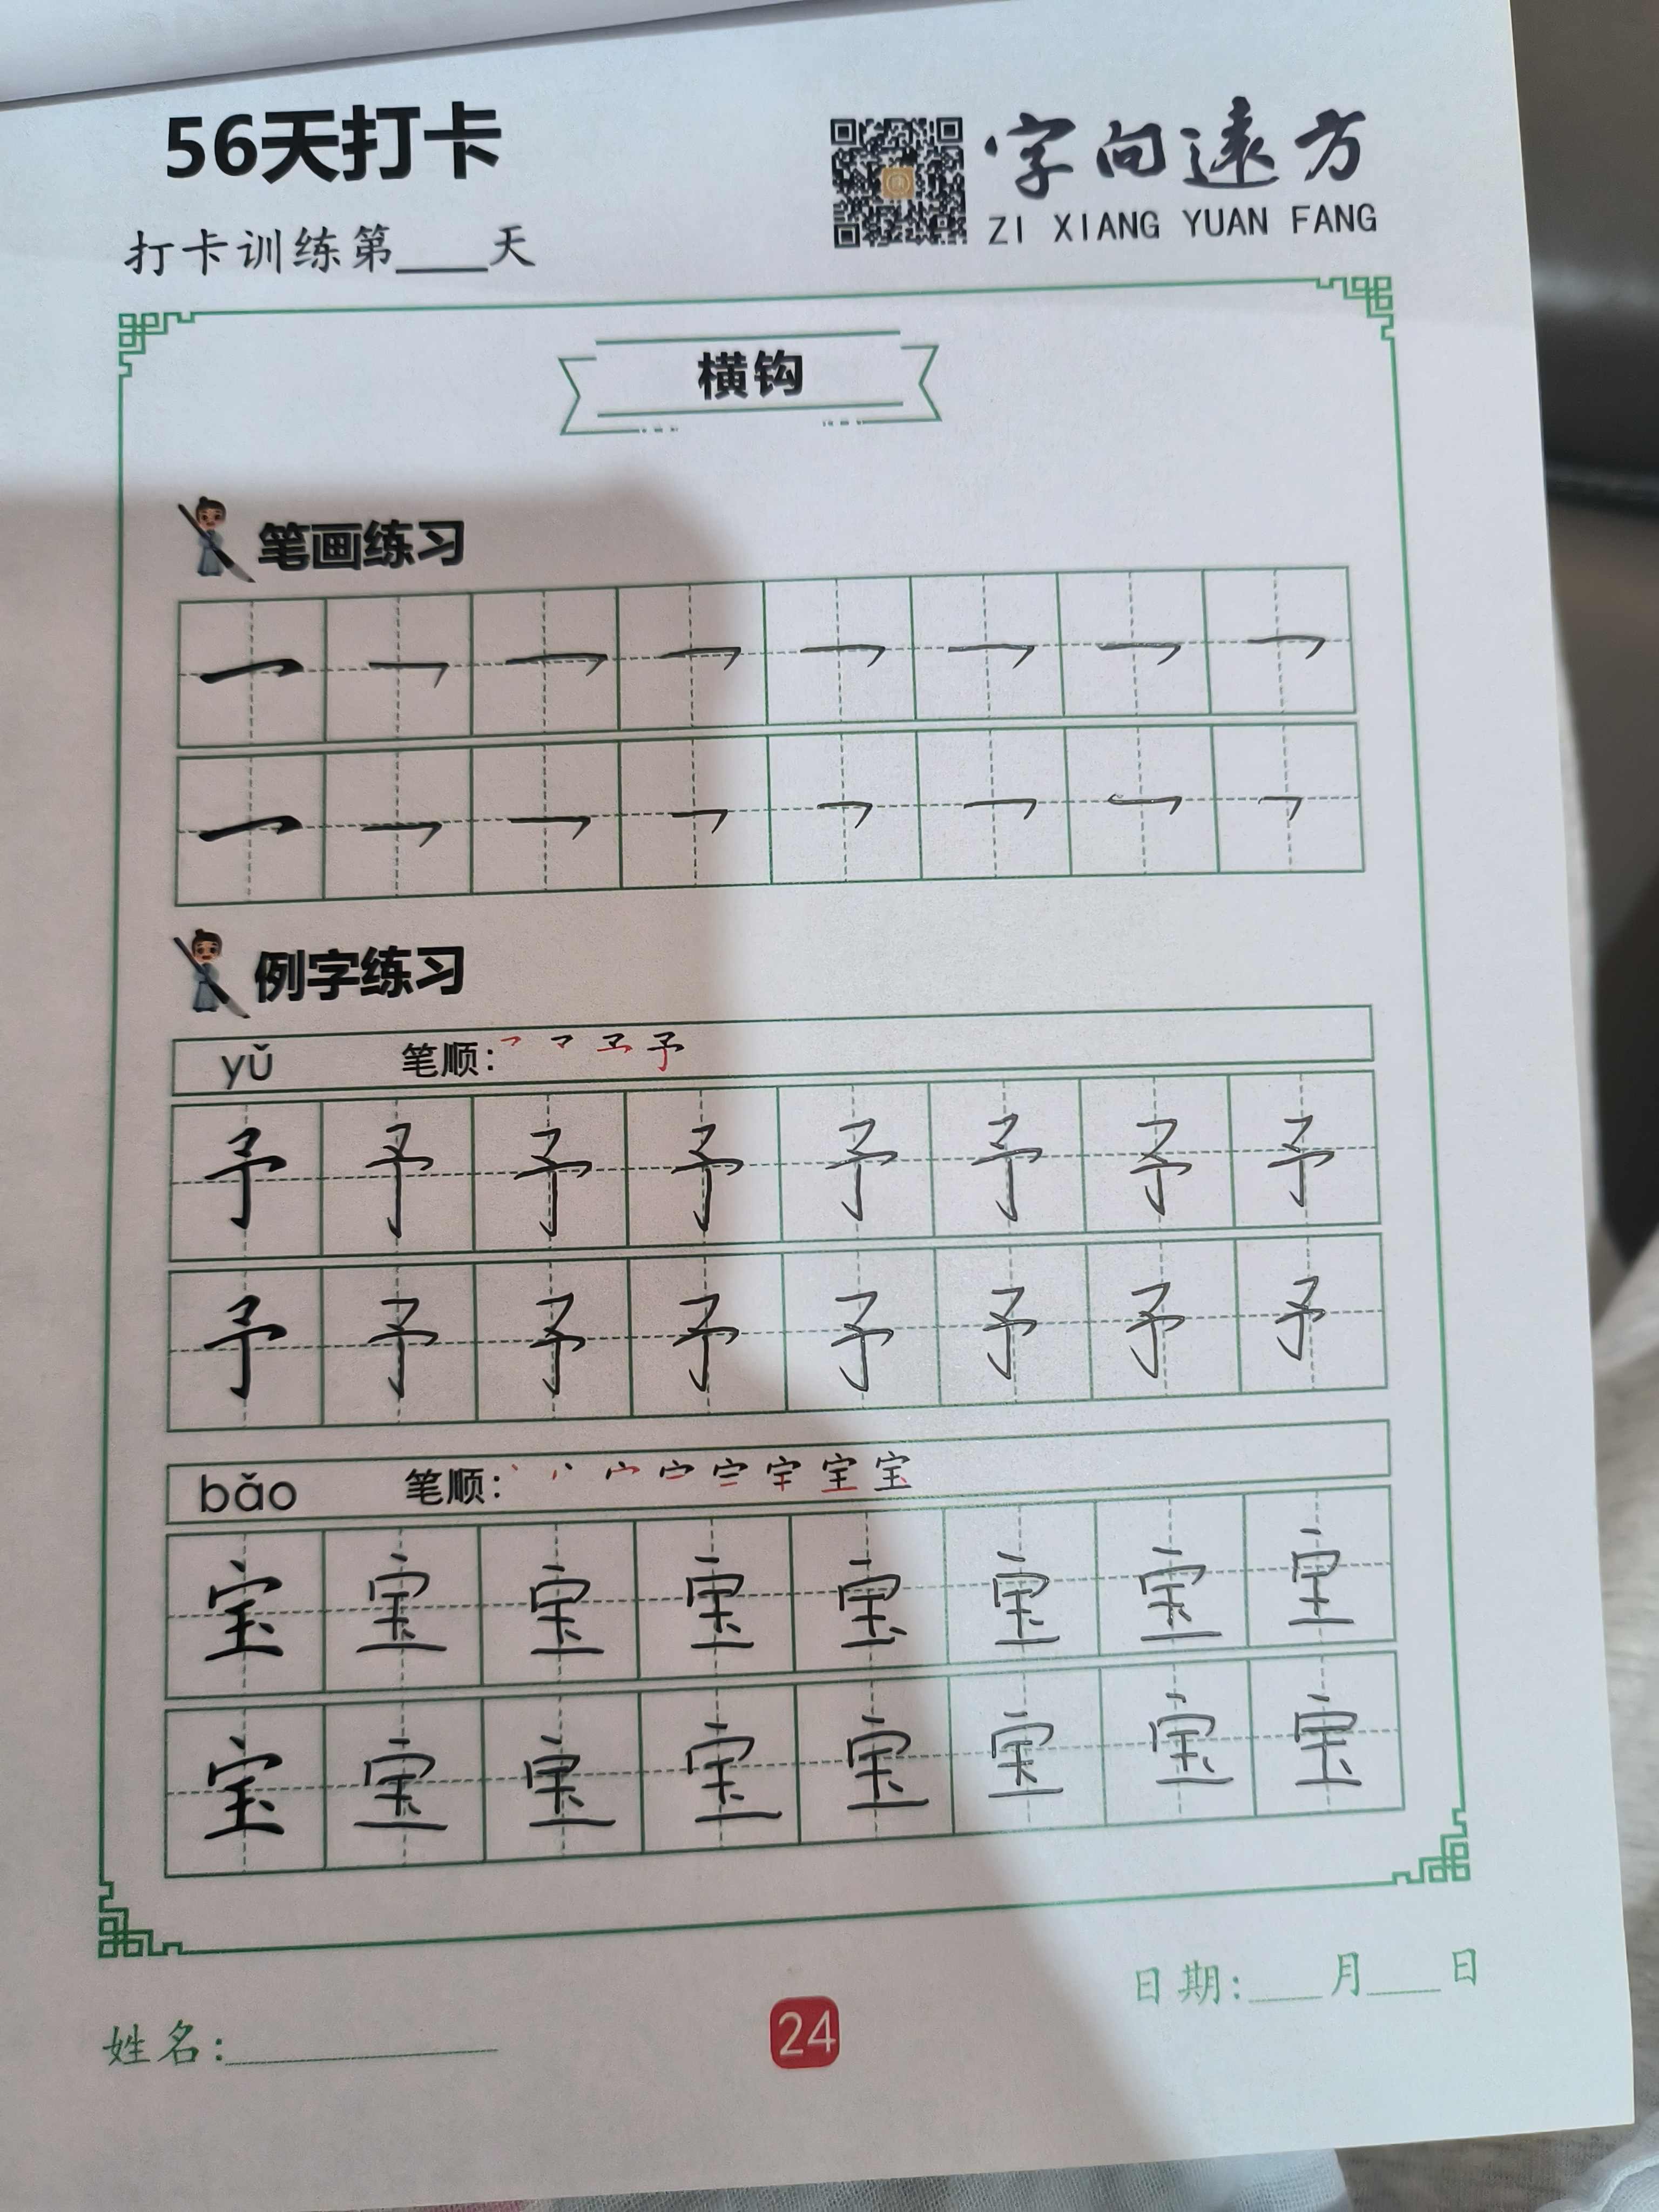 56天打卡
字向遠方
ZI XIANG YUAN FANG
打卡训练第___天
横钩
笔画练习
例字练习
yǔ 笔顺： 予
予 予 予 予 予 予 予 予
予 予 予 予 予 予 予 予
bǎo 笔顺： 宝
宝 宝 宝 宝 宝 宝 宝 宝
宝 宝 宝 宝 宝 宝 宝 宝
日期:___月___日
姓名:___
24